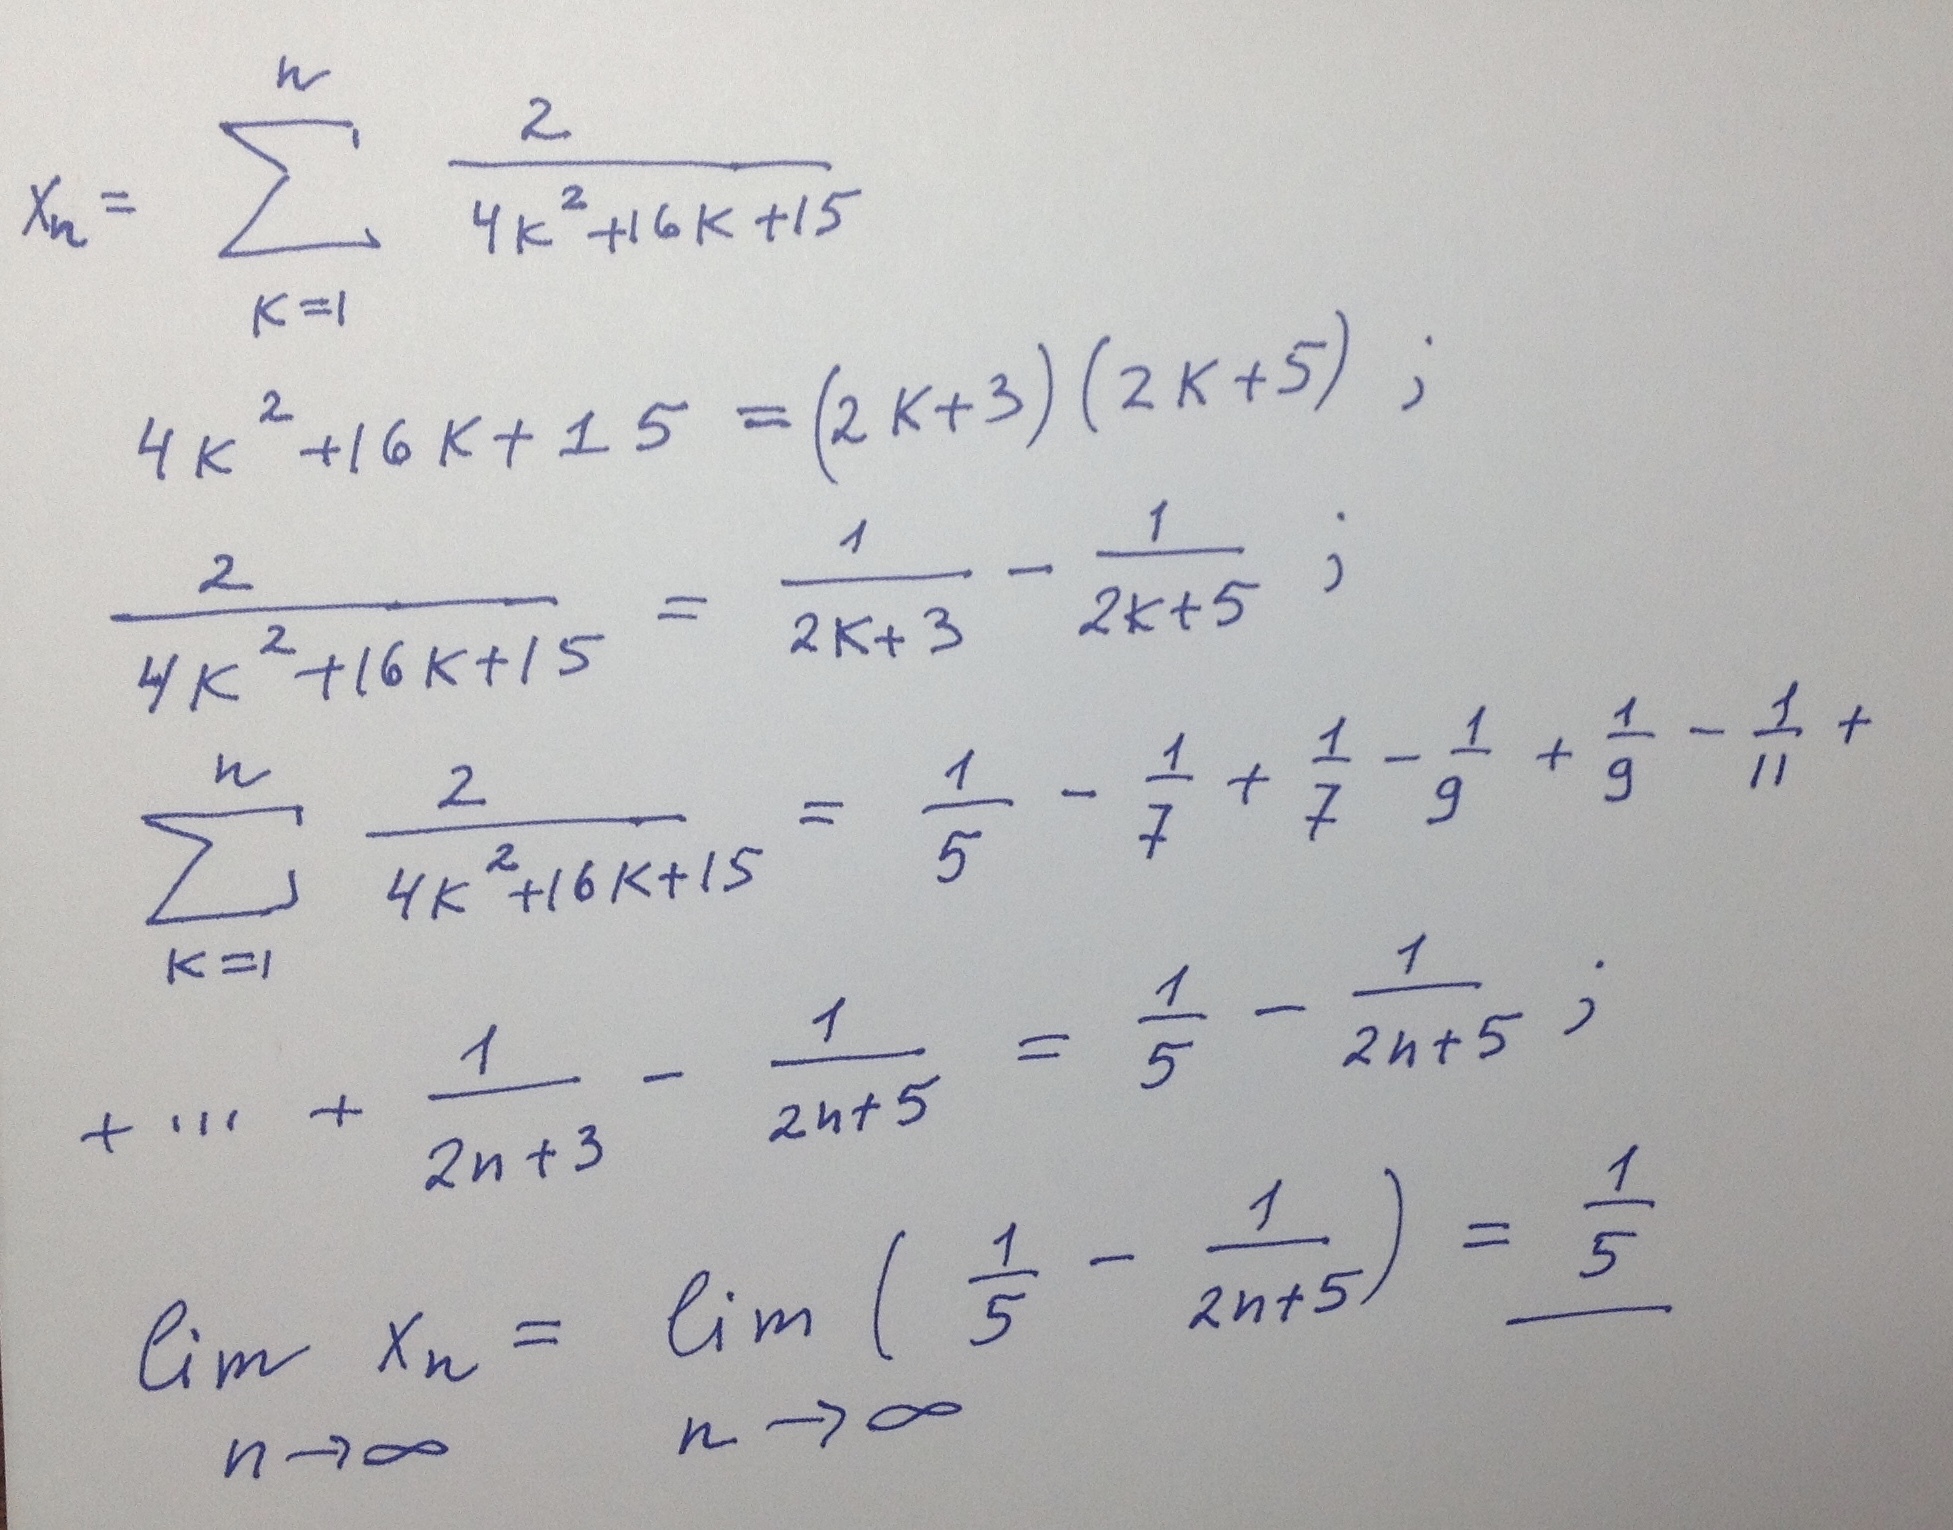 xₙ = ∑ₖ₌₁ⁿ 2/(4k²+16k+15)
4k²+16k+15 = (2k+3)(2k+5) ;
2/(4k²+16k+15) = 1/(2k+3) − 1/(2k+5) ;
∑ₖ₌₁ⁿ 2/(4k²+16k+15) = 1/5 − 1/7 + 1/7 − 1/9 + 1/9 − 1/11 +
+ ... + 1/(2n+3) − 1/(2n+5) = 1/5 − 1/(2n+5) ;
lim n→∞ xₙ = lim n→∞ ( 1/5 − 1/(2n+5) ) = 1/5